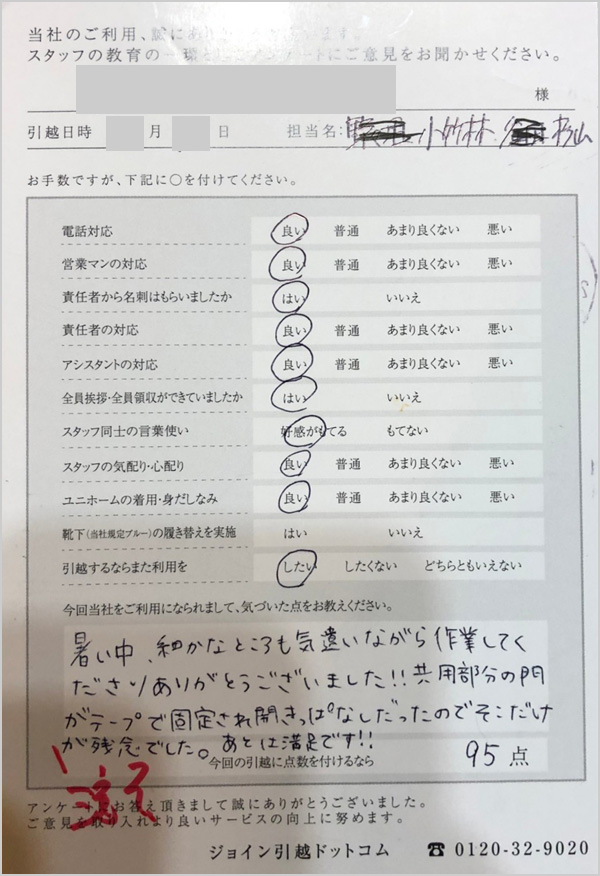 当社のご利用、誠にあ
スタッフの教育の一環としてアンケートにご意見をお聞かせください。
様
引越日時 月 日 担当名: 小竹林、杉山
お手数ですが、下記に○を付けてください。
電話対応 良い 普通 あまり良くない 悪い
営業マンの対応 良い 普通 あまり良くない 悪い
責任者から名刺はもらいましたか はい いいえ
責任者の対応 良い 普通 あまり良くない 悪い
アシスタントの対応 良い 普通 あまり良くない 悪い
全員挨拶・全員領収ができていましたか はい いいえ
スタッフ同士の言葉使い 好感がもてる もてない
スタッフの気配り・心配り 良い 普通 あまり良くない 悪い
ユニホームの着用・身だしなみ 良い 普通 あまり良くない 悪い
靴下(当社規定ブルー)の履き替えを実施 はい いいえ
引越するならまた利用を したい したくない どちらともいえない
今回当社をご利用になられまして、気づいた点をお教えください。
暑い中、細かなところも気遣いながら作業してく
ださりありがとうございました!!共用部分の門
がテープで固定され開きっぱなしだったのでそこだけ
が残念でした。あとは満足です!!
今回の引越に点数を付けるなら 95点
アンケートにお答え頂きまして誠にありがとうございました。
ご意見を取り入れより良いサービスの向上に努めます。
ジョイン引越ドットコム ☎ 0120-32-9020